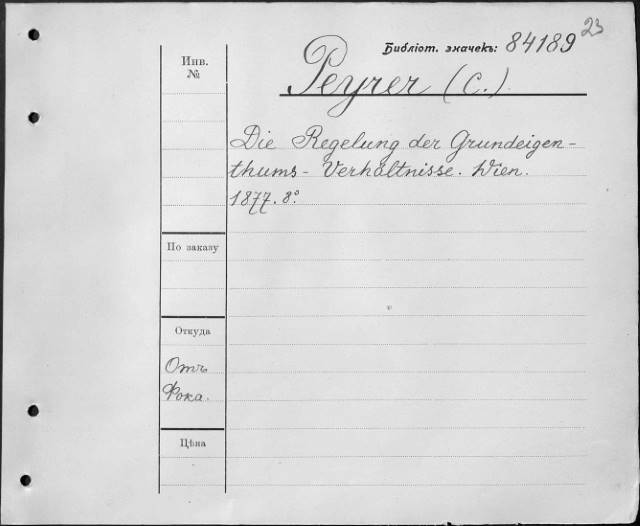 23
Библіот. значекъ: 84189
Инв.
№
Peyrer (C.)
Die Regelung der Grundeigen-
thums-Verhältnisse. Wien.
1877. 8º
По заказу
Откуда
Отъ
Фока.
Цѣна